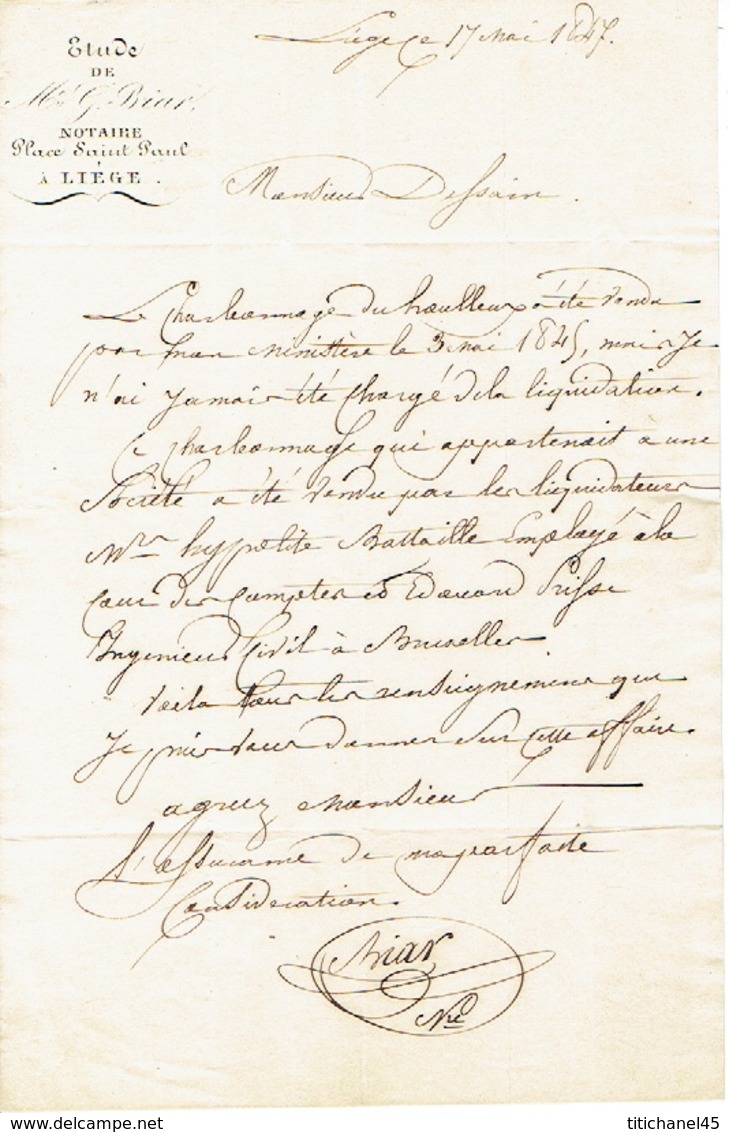 Etude
DE
Mtre G. Biar,
NOTAIRE
Place Saint Paul
à LIÉGE.
Liége ce 17 Mai 1847.
Monsieur Dessain.
Le Charbonnage du houlleux a été vendu
par mon Ministère le 3 Mai 1845, mais je
n'ai jamais été chargé de la liquidation.
Ce charbonnage qui appartenait à une
Société a été vendu par les liquidateurs
Mrs hyppolite Battaille Employé à la
Cour des Comptes et Edouard Prisse
Ingenieur Civil à Bruxelles.
Voila tous les renseignemens que
je puis vous donner sur cette affaire.
agreez Monsieur
l'assurance de ma parfaite
Consideration.
Biar
Nre
titichanel45